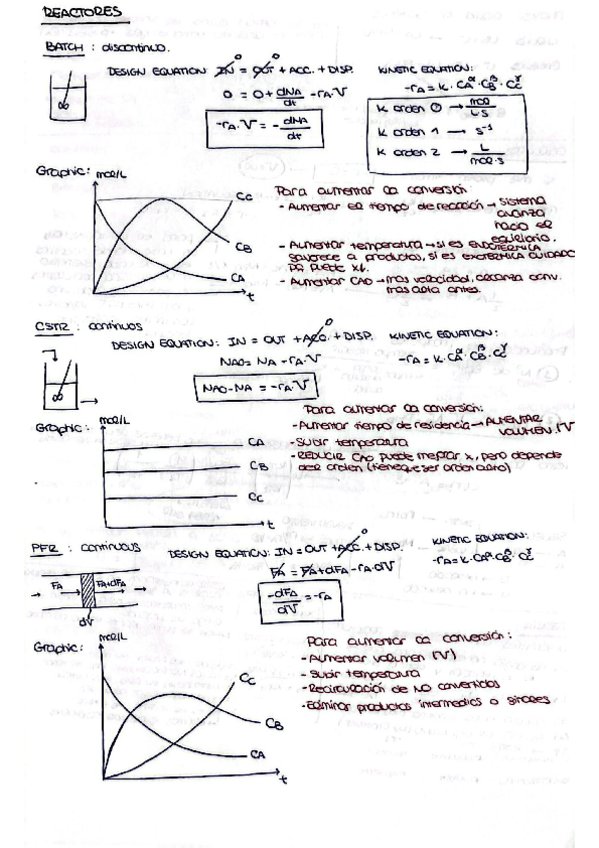 REACTORES
BATCH : discontinuo.
DESIGN EQUATION: IN⁰ = OUT⁰ + ACC. + DISP.
KINETIC EQUATION:
0 = 0 + dNA/dt - rA.V
-rA = K. CA^α. CB^β. CC^γ
-rA.V = - dNA/dt
K orden 0 → mol/L·s
K orden 1 → s⁻¹
K orden 2 → L/mol·s
Graphic: mol/L
CC
CB
CA
t
Para aumentar la conversión
- Aumentar el tiempo de reacción → sistema
avanza
hacia el
equilibrio.
- Aumentar temperatura → si es ENDOTÉRMICA
favorece a productos, si es EXOTÉRMICA CUIDADO
PQ puede X↓.
- Aumentar CAO → más velocidad, alcanza conv.
más alta antes.
CSTR : continuos
DESIGN EQUATION: IN = OUT + ACC.⁰ + DISP.
KINETIC EQUATION:
NAO = NA - rA.V
-rA = K. CA^α. CB^β. CC^γ
NAO - NA = -rA.V
Graphic: mol/L
CA
CB
CC
t
Para aumentar la conversión:
- Aumentar tiempo de residencia → AUMENTAR
VOLUMEN (V)
- Subir temperatura
- REDUCIR CAO puede mejorar X, pero depende
del orden (tiene que ser orden cero)
PFR : continuous
DESIGN EQUATION: IN = OUT + ACC.⁰ + DISP.
KINETIC EQUATION:
FA = FA + dFA - rA.dV
-rA = K. CA^α. CB^β. CC^γ
FA
FA+dFA
dV
-dFA/dV = -rA
Graphic: mol/L
CC
CB
CA
t
Para aumentar la conversión :
- Aumentar volumen (V)
- Subir temperatura
- Recirculación de NO convertidos
- Eliminar productos intermedios o